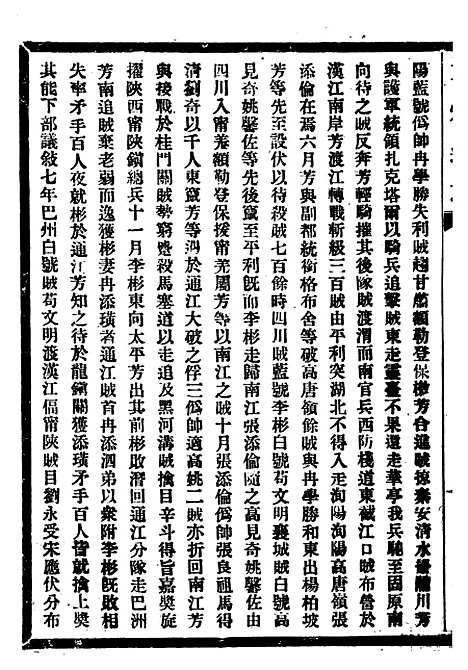 陽藍號僞帥冉學勝失利賊趨甘肅額勒登保檄芳合追賊掠秦安淸水龍川芳
與護軍統領扎克塔爾以騎兵追擊賊東走靈臺不果還走華亭我兵馳至固原南
向待之賊反奔芳輕騎摧其後隊賊渡渭而南官兵西防棧道東截江口賊布營於
漢江南岸芳渡江轉戰斬級三百賊由平利突湖北不得入走洵陽洵陽高唐嶺張
添倫在焉六月芳與副都統衘格布舍等破高唐嶺餘賊與冉學勝和東出楊柏坡
芳等先至設伏以待殺賊七百餘時四川賊藍號李彬白號苟文明襄城賊白號高
見奇姚馨佐等先後竄至平利旣而李彬走歸南江張添倫隨之高見奇姚馨佐由
四川入甯羗額勒登保援甯羗屬芳等以南江之賊十月張添倫僞帥張良祖馬得
淸劉奇以千人東竄芳等遇於通江大破之俘三僞帥適高姚二賊亦折回南江芳
與接戰於桂門關賊勢窮蹙殺馬塞道以走追及黑河溝賊擒目辛斗得旨嘉奬旋
擢陝西甯陝鎭總兵十一月李彬東向太平芳出其前彬敗潛回通江分隊走巴州
芳南追賊棄老弱而逸獲彬妻冉添璜者通江賊首冉添泗弟以衆附李彬旣敗相
失率矛手百人夜就彬於通江芳知之待於龍鎭關獲添璜矛手百人皆就擒上奬
其能下部議敘七年巴州白號賊苟文明渡漢江偪甯陝賊目劉永受宋應伏分布